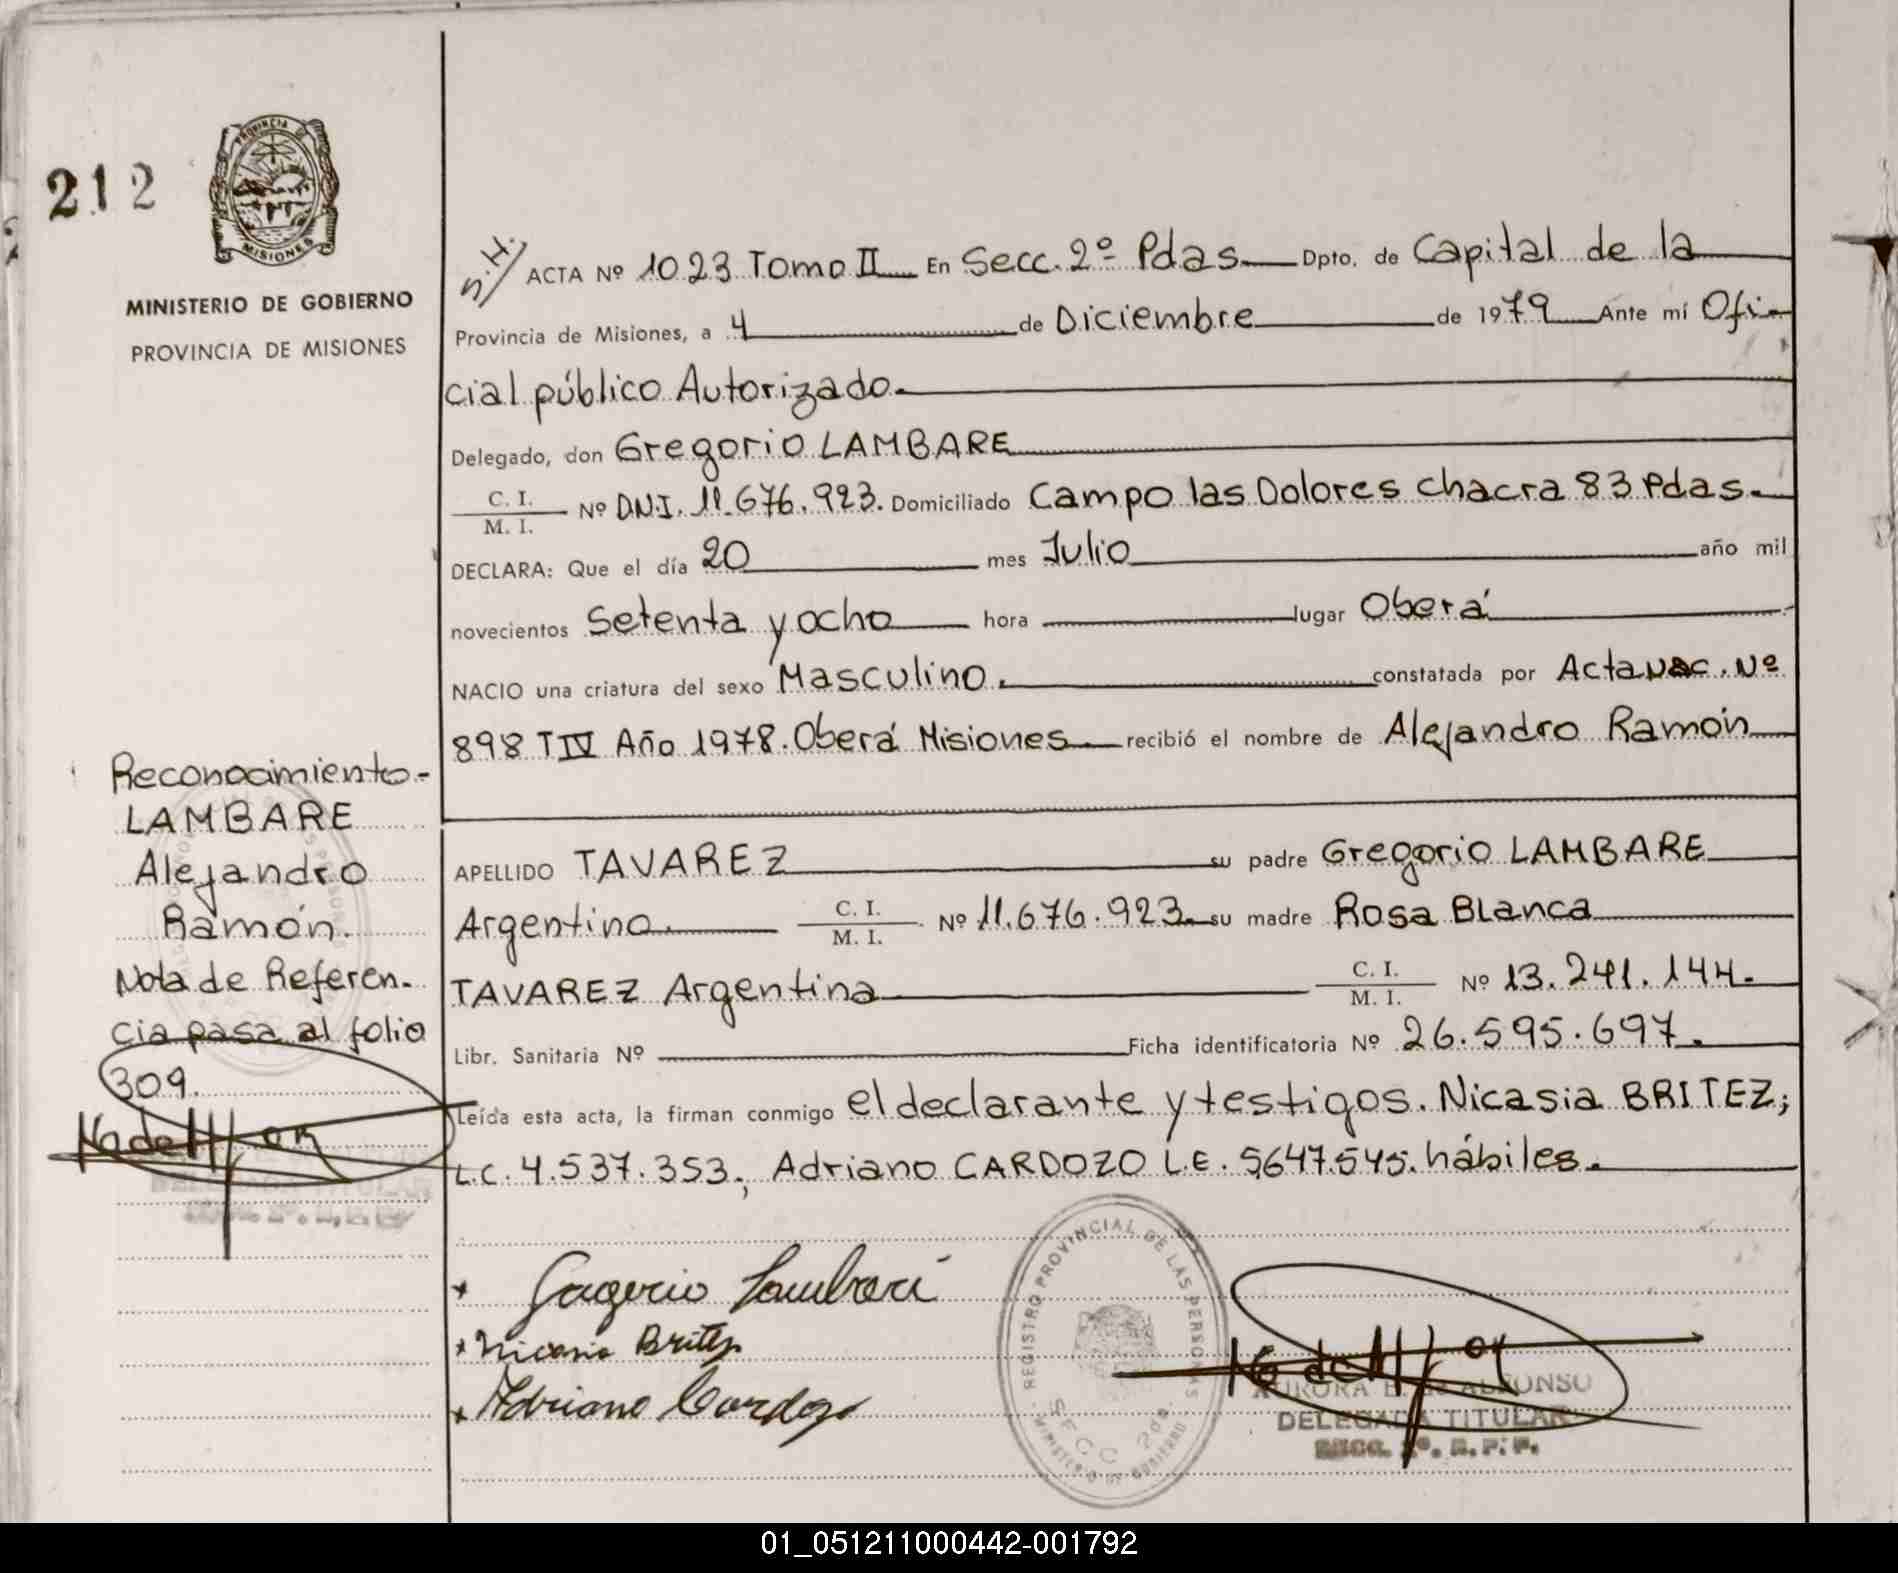 212
PROVINCIA DE
MISIONES
MINISTERIO DE GOBIERNO
PROVINCIA DE MISIONES
S.H. ACTA Nº 1023 Tomo II En Secc. 2º Pdas Dpto. de Capital de la
Provincia de Misiones, a 4 de Diciembre de 1979 Ante mí Ofi-
cial público Autorizado.
Delegado, don Gregorio LAMBARE
C. I.
M. I. Nº D.N.I. 11.676.923. Domiciliado Campo las Dolores chacra 83 Pdas.
DECLARA: Que el día 20 mes Julio año mil
novecientos Setenta y ocho hora lugar Oberá
NACIO una criatura del sexo Masculino. constatada por Acta Nac. Nº
898 T IV Año 1978. Oberá Misiones recibió el nombre de Alejandro Ramón
Reconocimiento-
LAMBARE
Alejandro
Ramón.
Nota de Referen-
cia pasa al folio
309.
APELLIDO TAVAREZ su padre Gregorio LAMBARE
Argentino. C. I.
M. I. Nº 11.676.923. su madre Rosa Blanca
TAVAREZ Argentina C. I.
M. I. Nº 13.241.144.
Libr. Sanitaria Nº Ficha identificatoria Nº 26.595.697.
Leída esta acta, la firman conmigo el declarante y testigos. Nicasia BRITEZ;
L.C. 4.537.353., Adriano CARDOZO L.E. 5647.545. hábiles.
Gregorio Lambaré
Nicasia Britez
Adriano Cardozo
REGISTRO PROVINCIAL DE LAS PERSONAS
MINISTERIO DE GOBIERNO
SECC 2da
AURORA E. de ALFONSO
DELEGADA TITULAR
SECC. 2º. R.P.P.
DELEGADA TITULAR
01_051211000442-001792